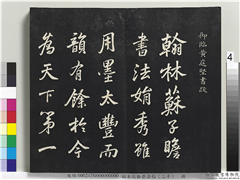 御臨黄庭堅書跋
翰林蘇子瞻
書法娟秀雖
用墨太豐而
韻有餘於今
為天下第一